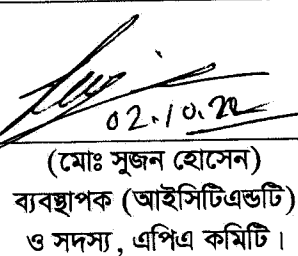 02.10.22
(মোঃ সুজন হোসেন)
ব্যবস্থাপক (আইসিটিএন্ডটি)
ও সদস্য, এপিএ কমিটি।